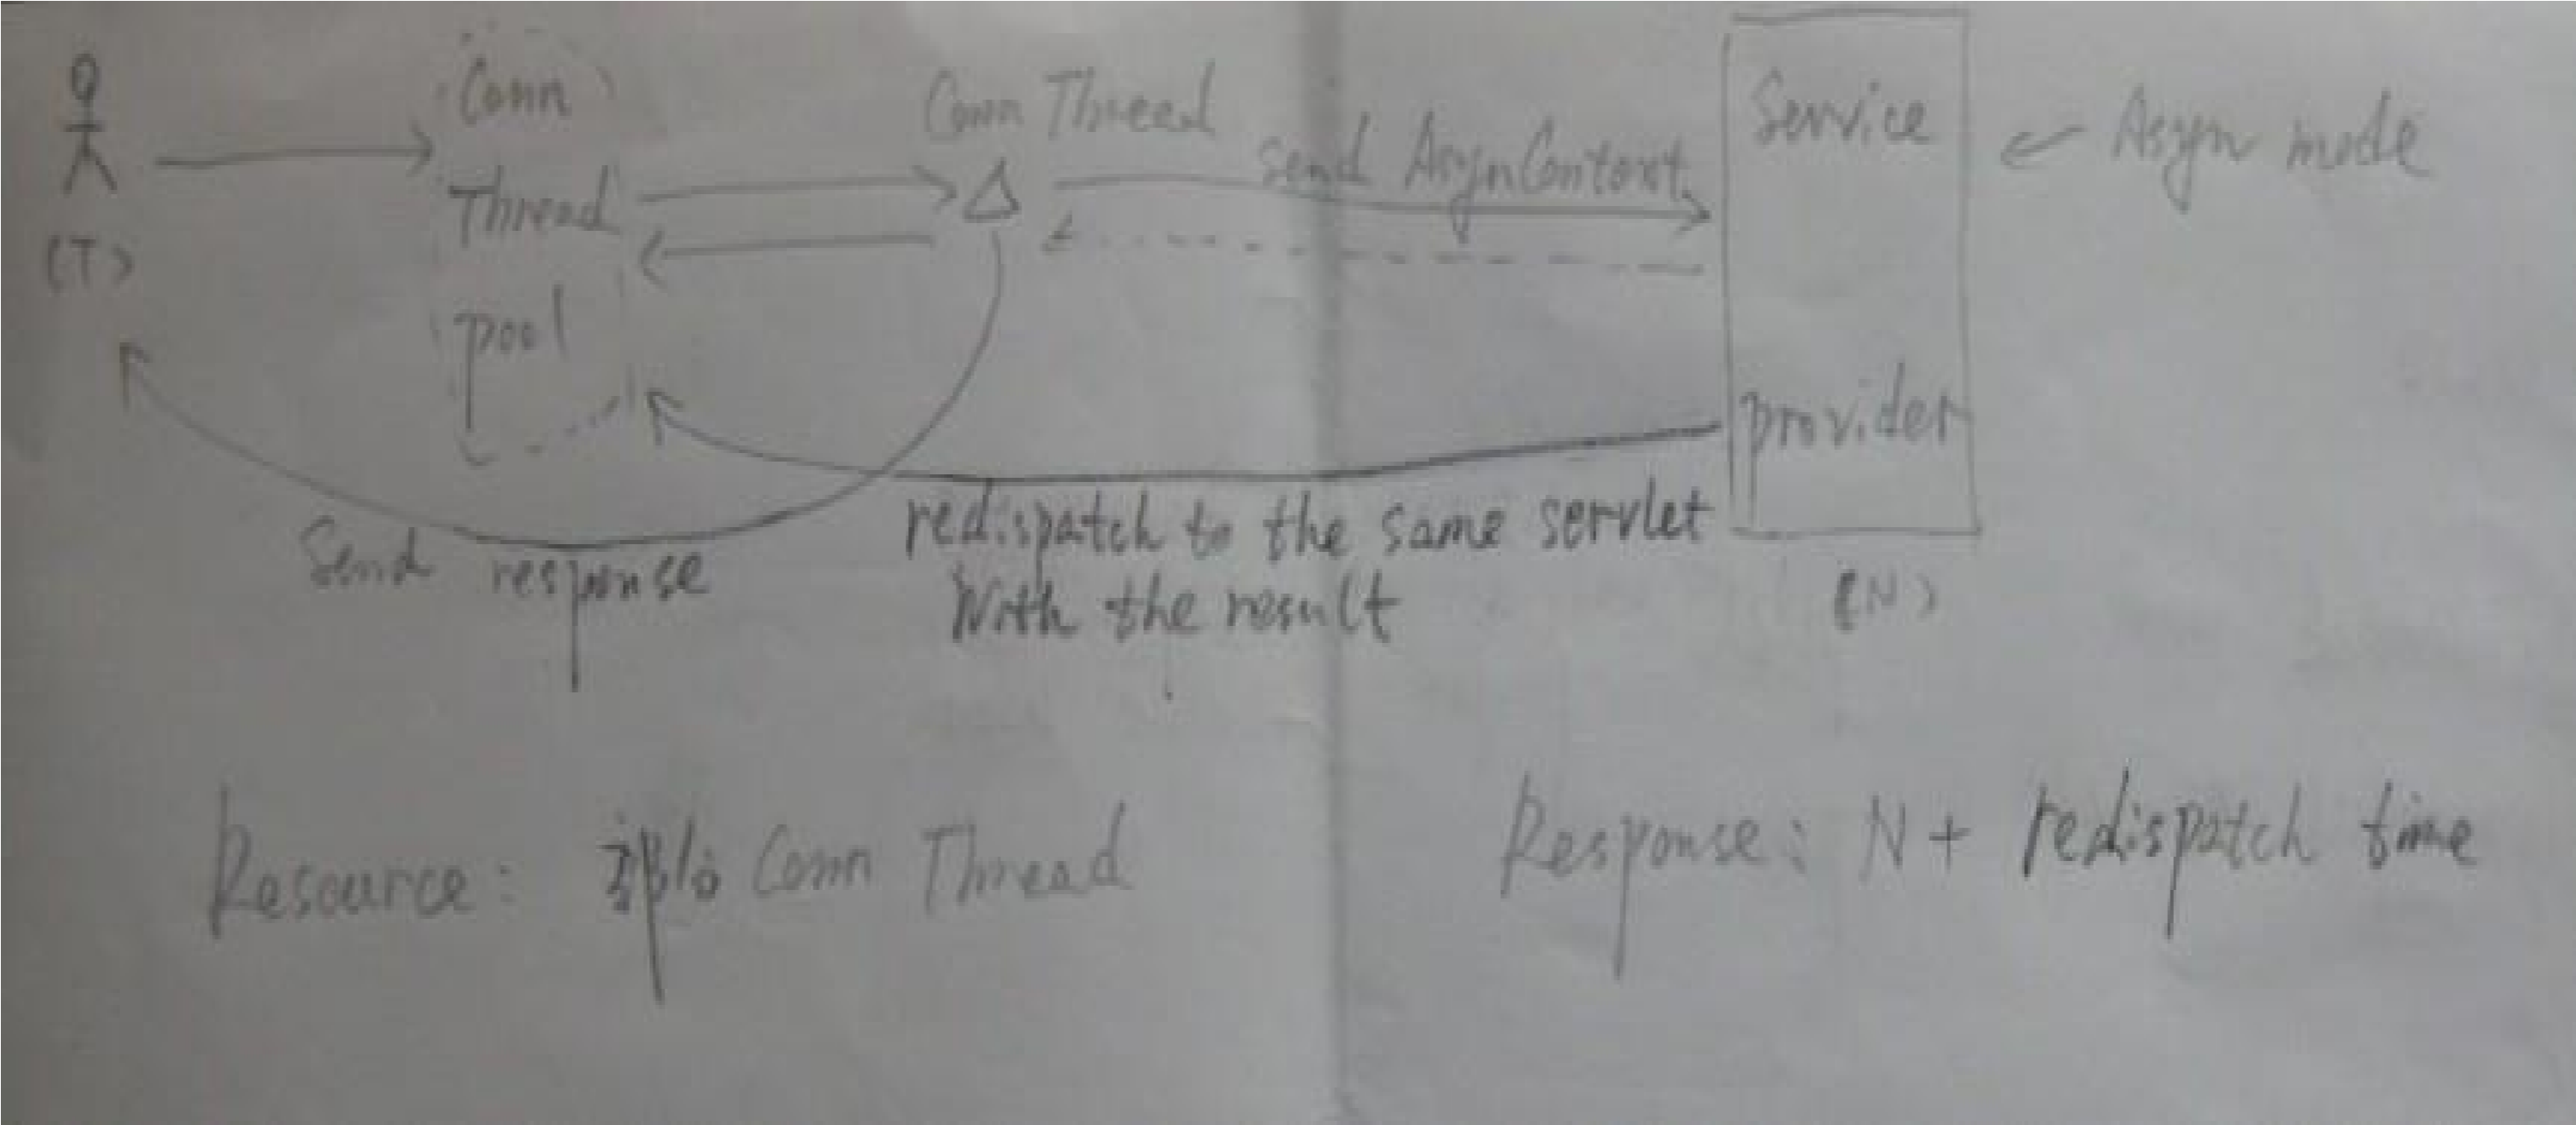 Conn
Thread
pool
(T)
Conn Thread
send AsynContext
Service
provider
(N)
Asyn mode
redispatch to the same servlet
With the result
Send response
Resource: Conn Thread
Response: N + redispatch time